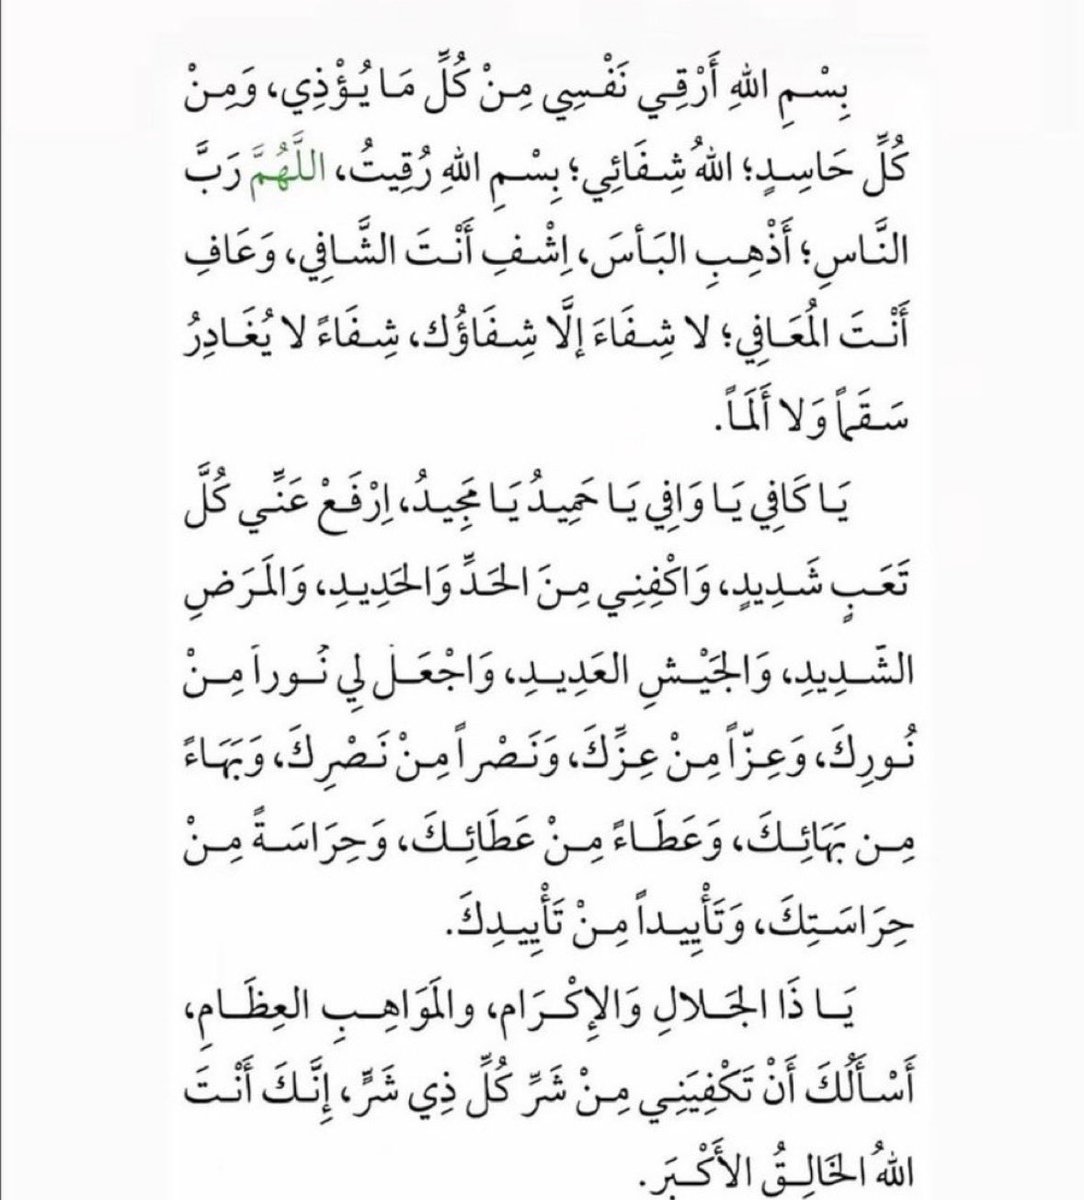 بِسْمِ اللهِ أَرْقِي نَفْسِي مِنْ كُلِّ مَا يُؤْذِي، وَمِنْ
كُلِّ حَاسِدٍ؛ اللهُ شِفَائِي؛ بِسْمِ اللهِ رُقِيتُ، اللَّهُمَّ رَبَّ
النَّاسِ؛ أَذْهِبِ البَأسَ، اِشْفِ أَنْتَ الشَّافِي، وَعَافِ
أَنْتَ المُعَافِي؛ لا شِفَاءَ إلَّا شِفَاؤُك، شِفَاءً لا يُغَادِرُ
سَقَماً وَلا أَلَمَاً.
يَا كَافِي يَا وَافِي يَا حَمِيدُ يَا مَجِيدُ، اِرْفَعْ عَنِّي كُلَّ
تَعَبٍ شَدِيدٍ، وَاكْفِنِي مِنَ الحَدِّ وَالحَدِيدِ، وَالمَرَضِ
الشَّدِيدِ، وَالجَيْشِ العَدِيدِ، وَاجْعَلْ لِي نُوراً مِنْ
نُورِكَ، وَعِزّاً مِنْ عِزِّكَ، وَنَصْراً مِنْ نَصْرِكَ، وَبَهَاءً
مِن بَهَائِكَ، وَعَطَاءً مِنْ عَطَائِكَ، وَحِرَاسَةً مِنْ
حِرَاسَتِكَ، وَتَأْيِيداً مِنْ تَأْيِيدِكَ.
يَا ذَا الجَلالِ وَالإِكْرَامِ، والمَوَاهِبِ العِظَامِ،
أَسْأَلُكَ أَنْ تَكْفِيَنِي مِنْ شَرِّ كُلِّ ذِي شَرٍّ، إِنَّكَ أَنْتَ
اللهُ الخَالِقُ الأَكْبَرِ.